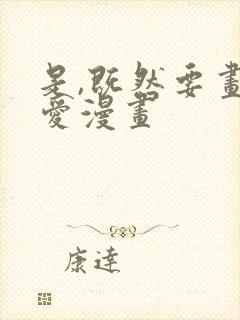 是,既然要畫
愛漫畫
康達